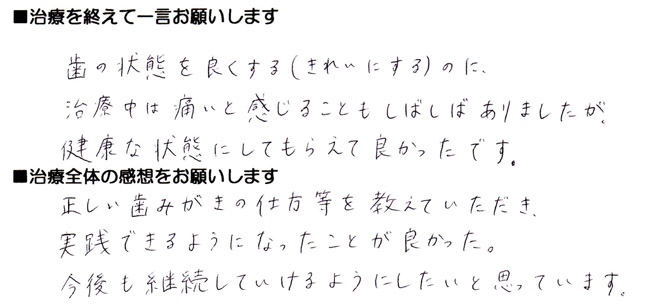 ■治療を終えて一言お願いします
歯の状態を良くする(きれいにする)のに、
治療中は痛いと感じることもしばしばありましたが、
健康な状態にしてもらえて良かったです。
■治療全体の感想をお願いします
正しい歯みがきの仕方等を教えていただき、
実践できるようになったことが良かった。
今後も継続していけるようにしたいと思っています。